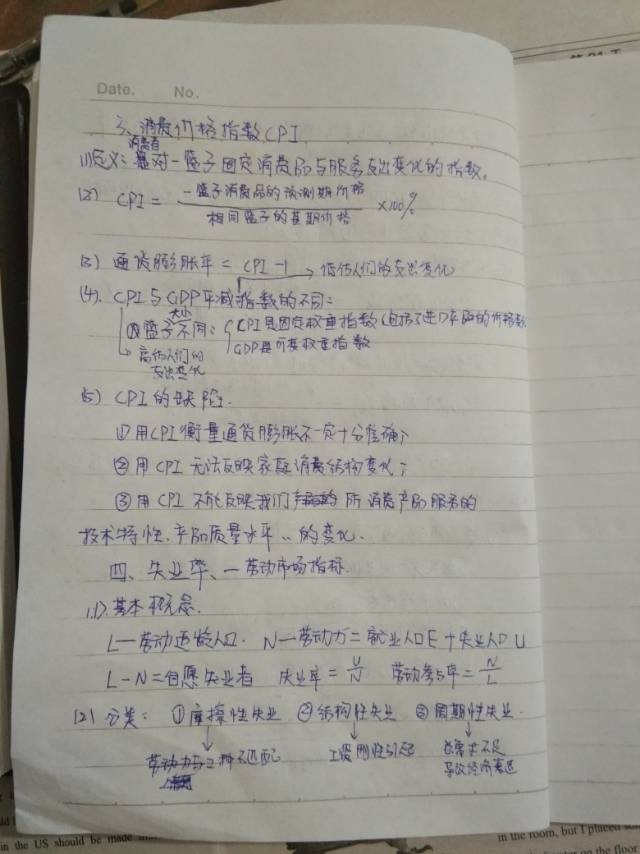 Date. No.
3、消费价格指数CPI
消费者
(1)定义:是对一篮子固定消费品与服务支出变化的指数。
(2) CPI = 一篮子消费品的预测期价格 / 相同篮子的基期价格 ×100%
(3) 通货膨胀率 = CPI-1 → 低估人们的支出变化
(4). CPI与GDP平减指数的不同:
大小
篮子不同: CPI是固定权重指数(包括了进口产品的价格
GDP是可变权重指数
高估人们的
支出变化
(5) CPI的缺陷.
①用CPI衡量通货膨胀不一定十分准确;
②用CPI无法反映家庭消费结构变化;
③用CPI不能反映我们所消费产品服务的
技术特性、产品质量水平…的变化.
四、失业率、—劳动市场指标.
(1).基本概念.
L—劳动适龄人口. N—劳动力=就业人口E+失业人口U
L-N=自愿失业者 失业率=U/N 劳动参与率=N/L
(2) 分类: ①摩擦性失业 ②结构性失业 ③周期性失业.
劳动力与工种不匹配 工资刚性引起 总需求不足
导致经济衰退
in the US should be made
in the room, but I placed
on the floor